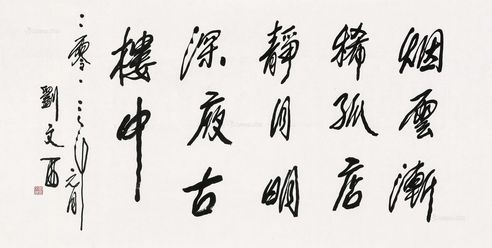 烟雲漸
稀孤店
靜月明
深夜古
樓中
二零一年元月
劉文西